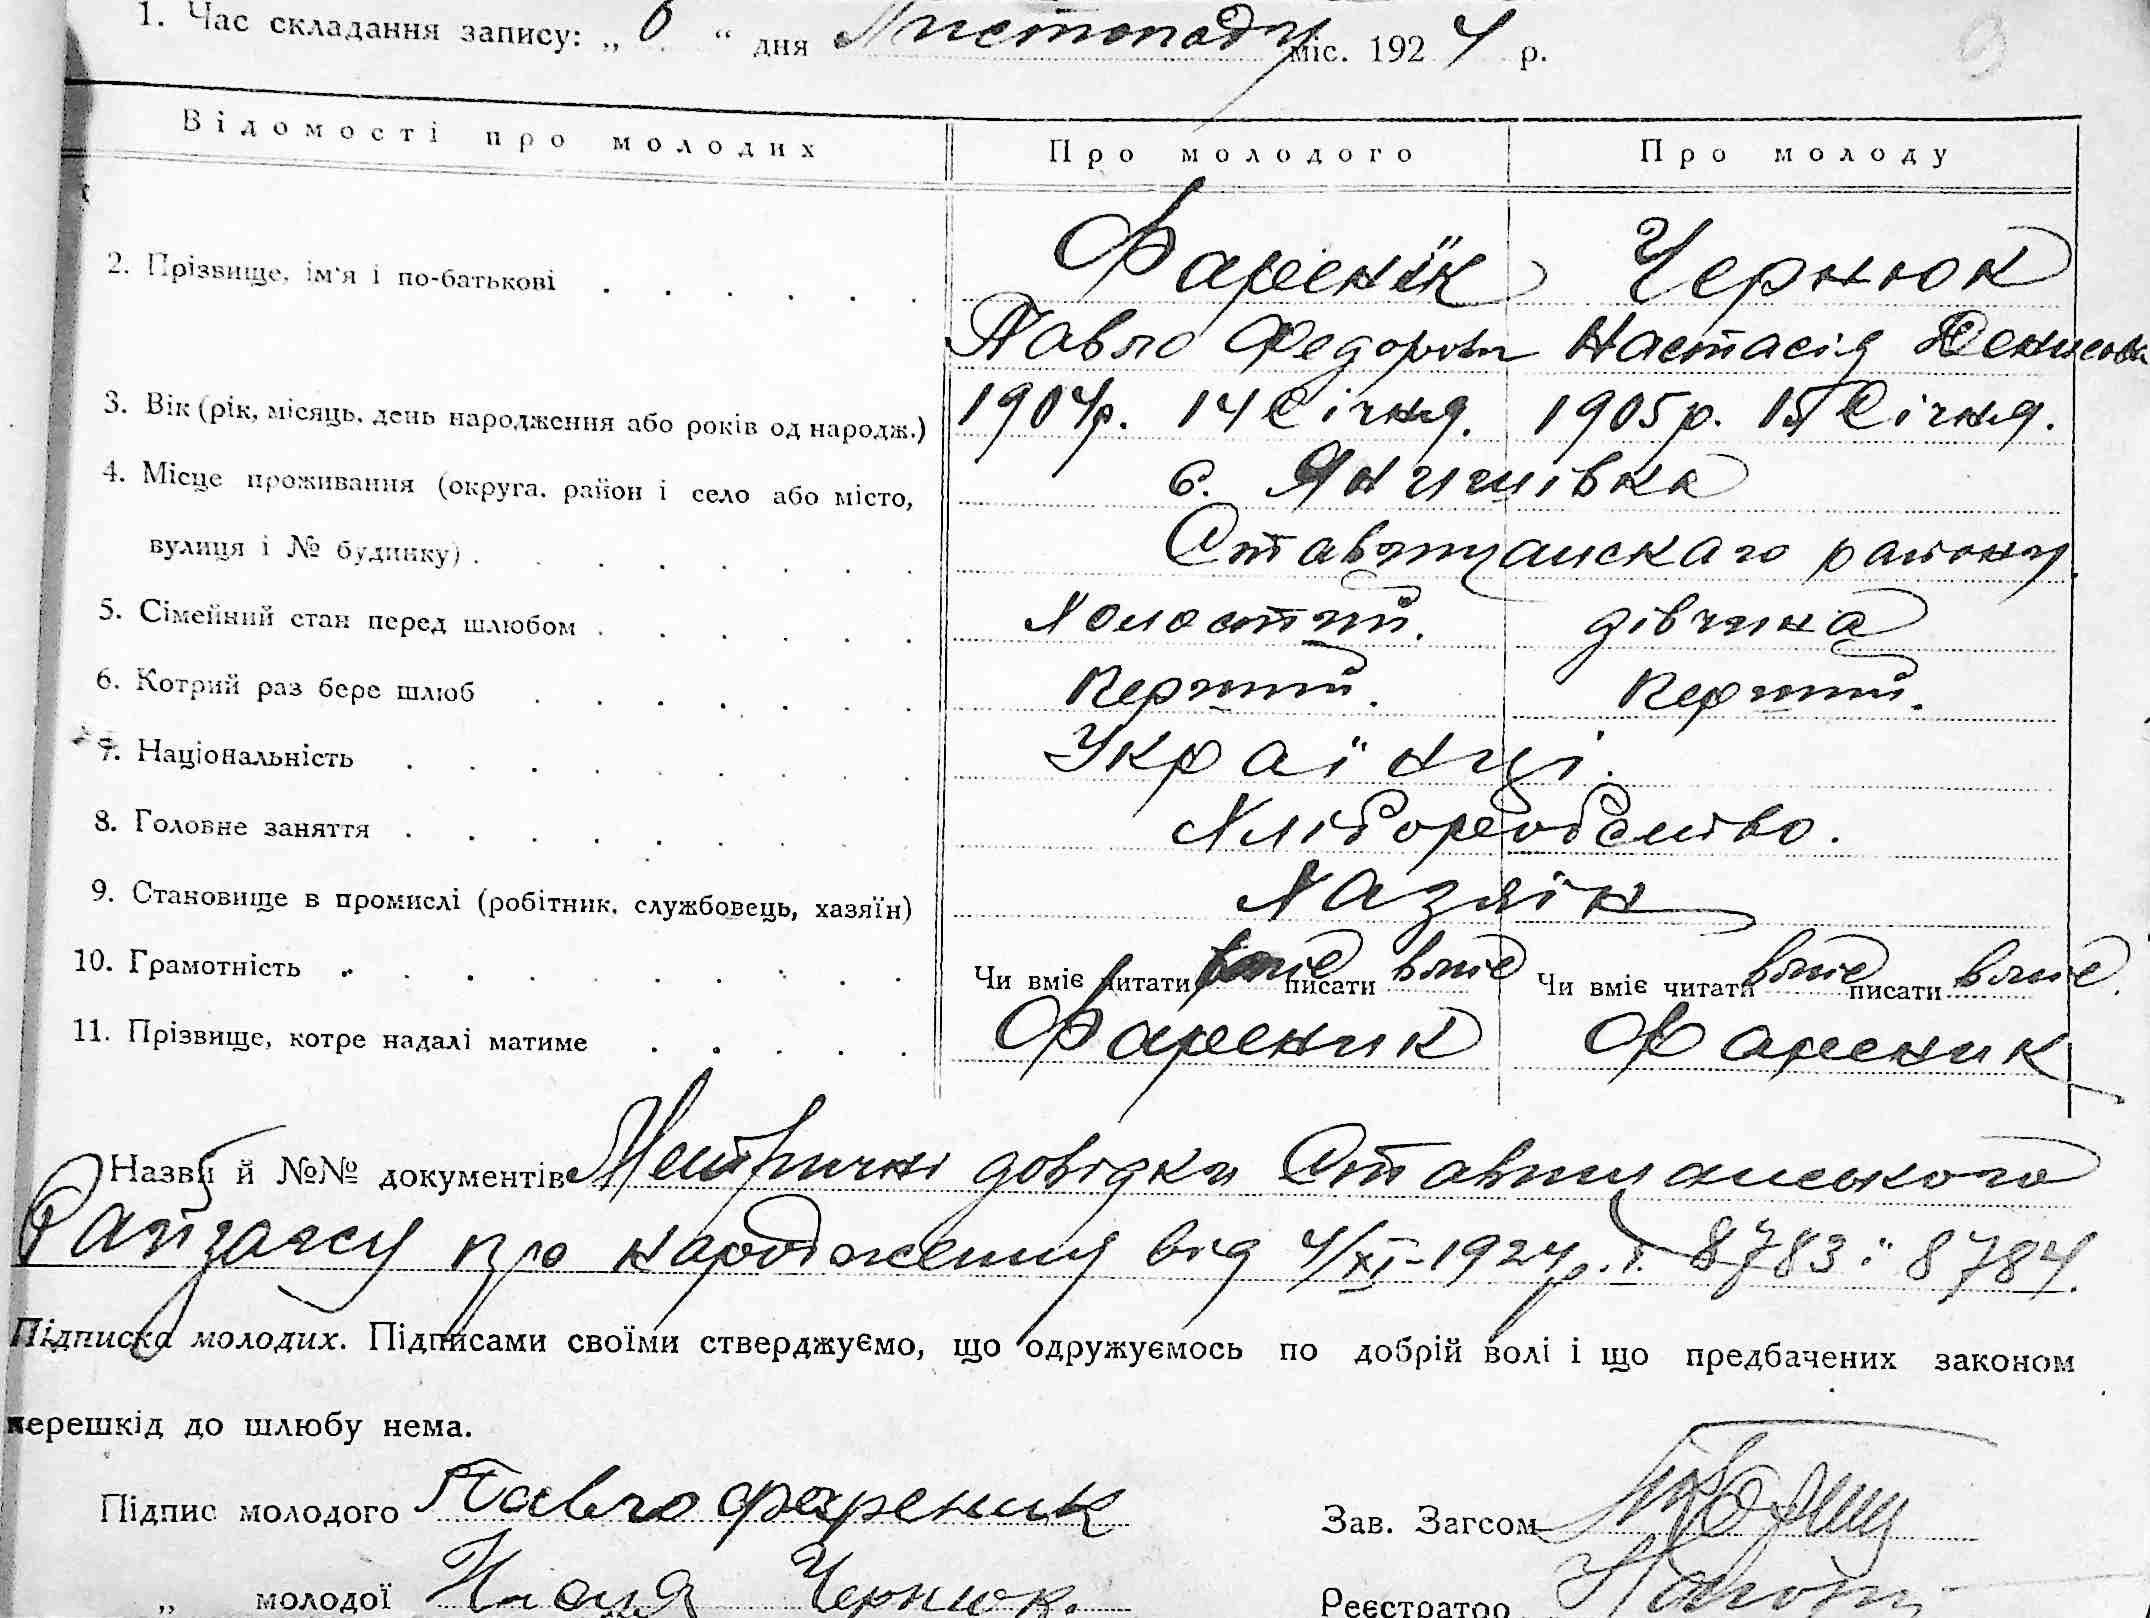 1. Час складання запису: „ 6 “ дня Листопаду міс. 1924 р.
Відомості про молодих Про молодого Про молоду
2. Прізвище, ім'я і по-батькові Фаренік Чернюк
Павло Федорович Настасія Денисовн
3. Вік (рік, місяць, день народження або років од народж.) 1904р. 14 Січня. 1905р. 15 Січня.
4. Місце проживання (округа, район і село або місто, с. Янишівка
вулиця і № будинку) Ставищанскаго району.
5. Сімейний стан перед шлюбом Холостий. дівчина
6. Котрий раз бере шлюб Перший. Перший.
7. Національність Українці.
8. Головне заняття Хліборобство.
9. Становище в промислі (робітник, службовець, хазяїн) Хазяїн
10. Грамотність Чи вміє читати вміє писати вміє Чи вміє читати вміє писати вміє.
11. Прізвище, котре надалі матиме Фареник Фареник
Назви й №№ документів Метричні довідки Ставищанського
Райзагсу про народження від 4/XI-1924р. 8783 і 8784.
Підписка молодих. Підписами своїми стверджуємо, що одружуємось по добрій волі і що предбачених законом
перешкід до шлюбу нема.
Підпис молодого Павло Фареник Зав. Загсом
„ молодої Чернюк. Реєстратор